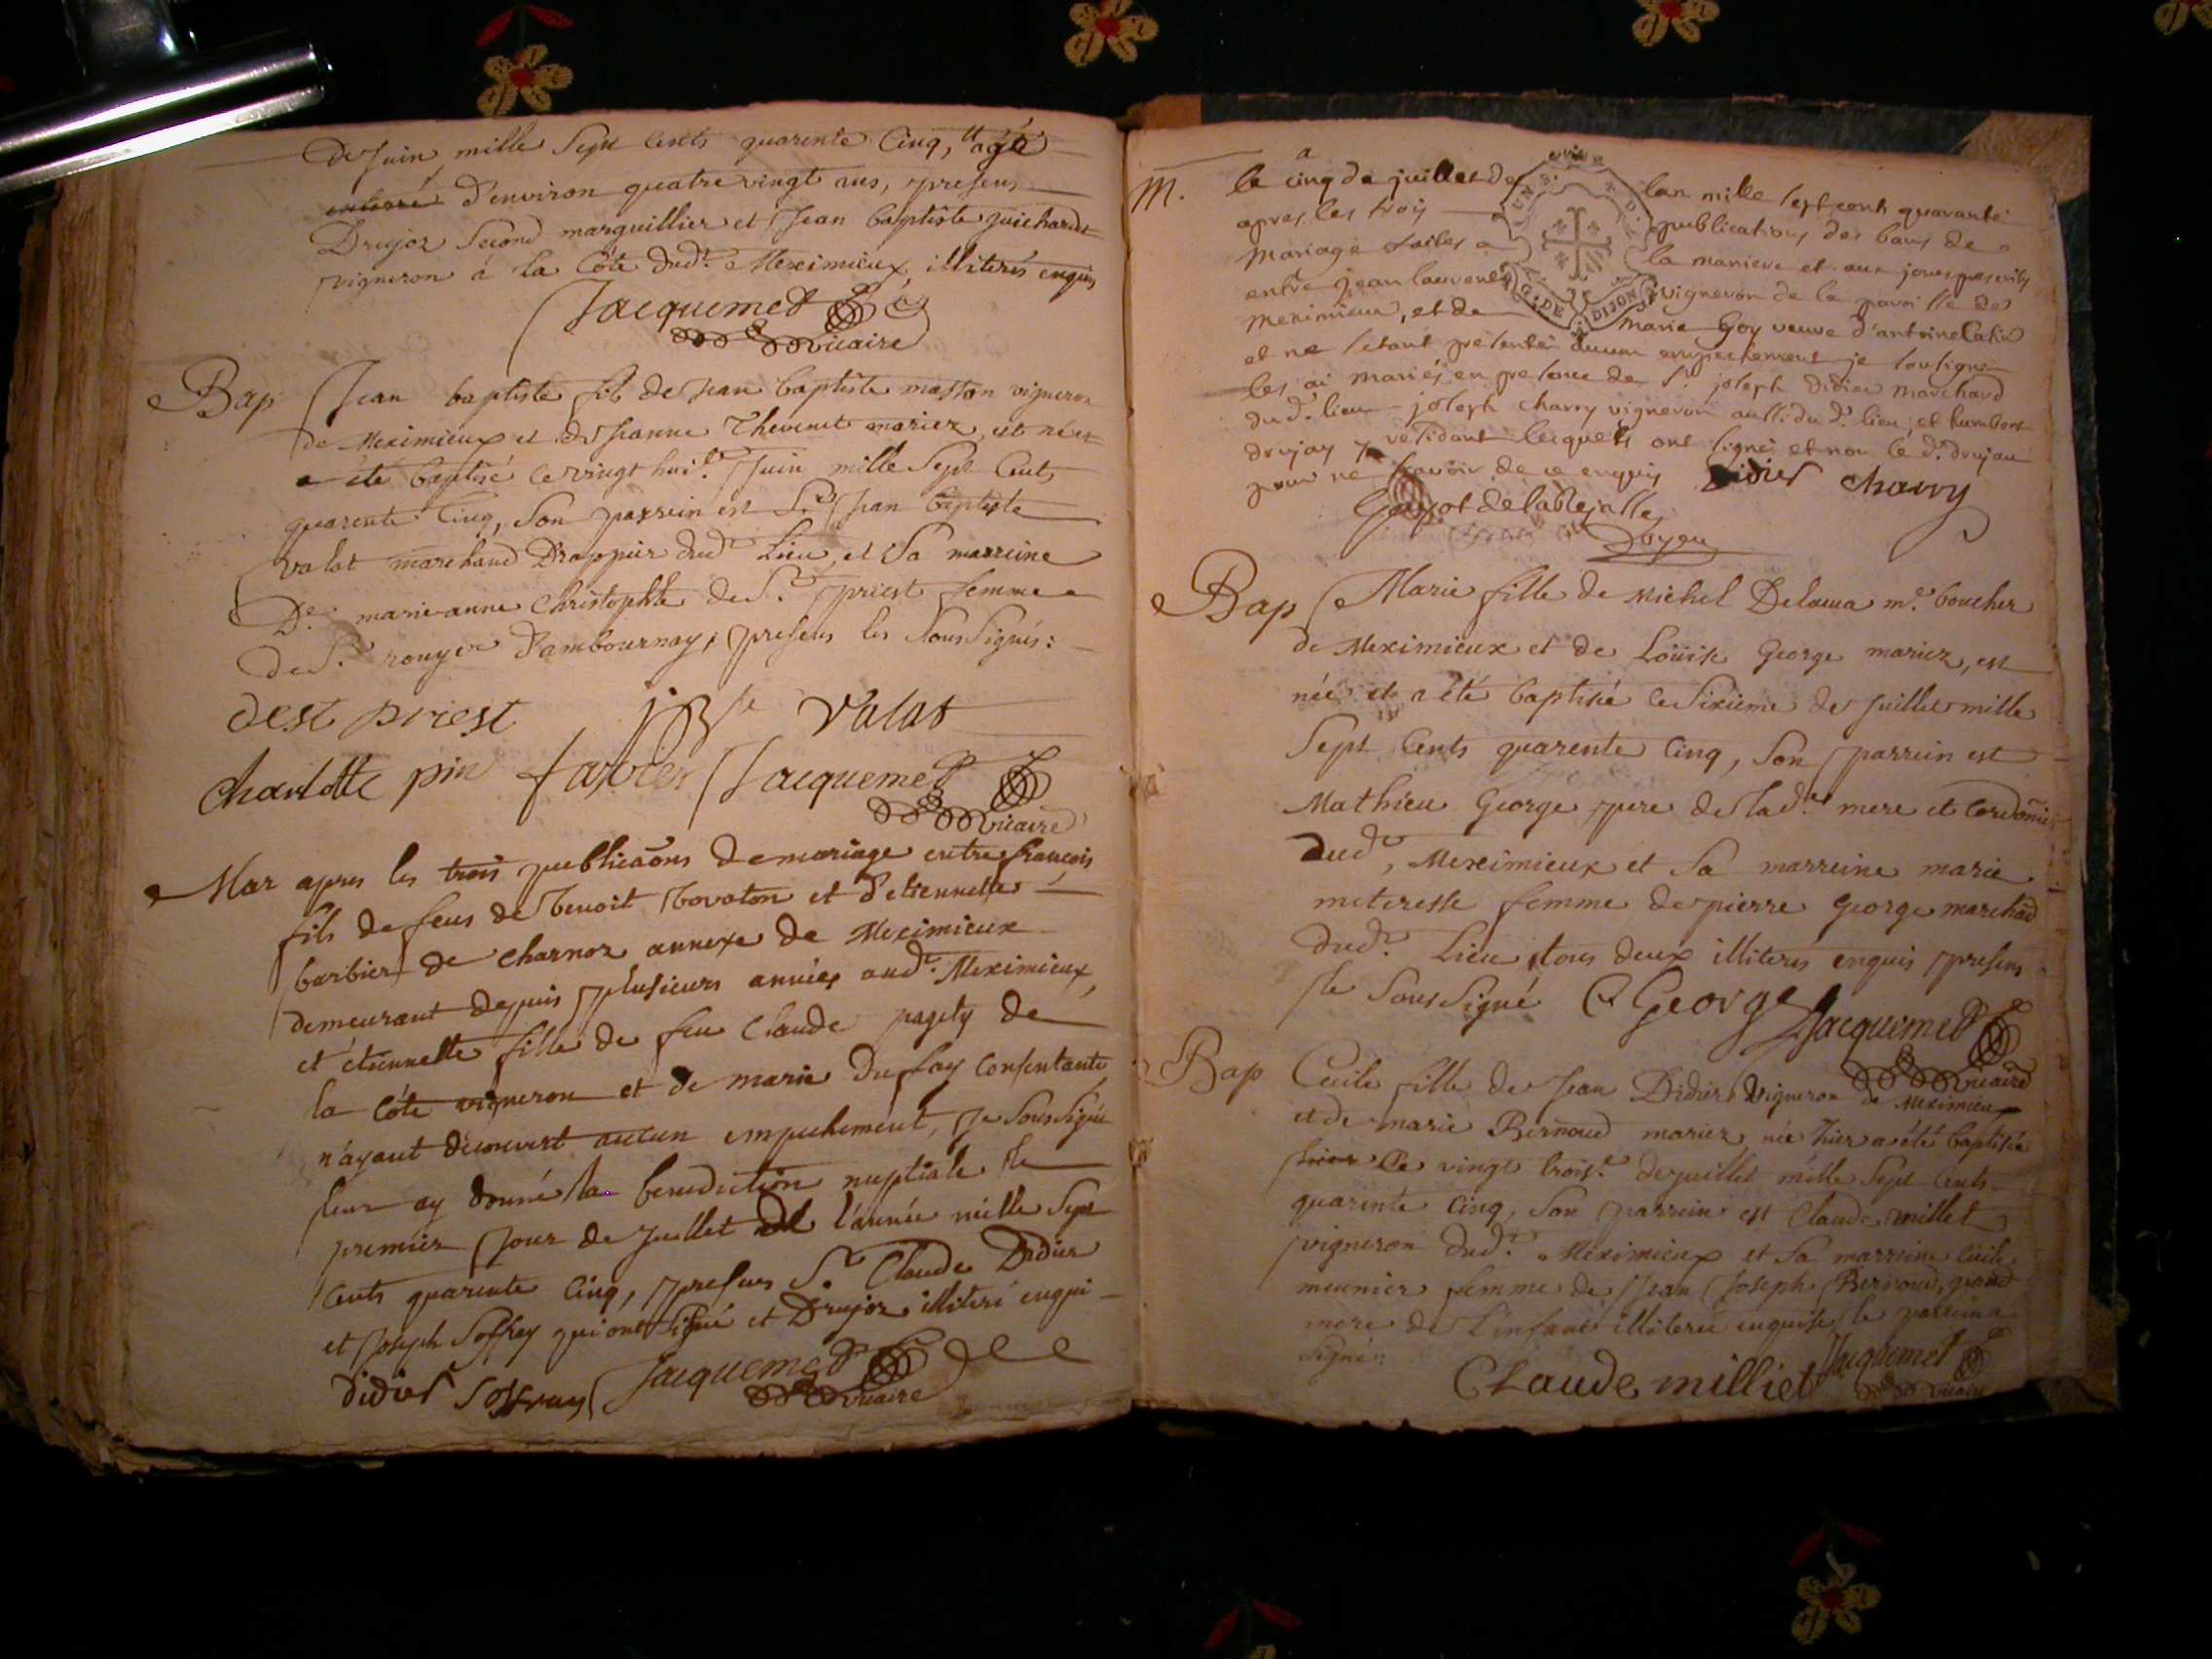 de Juin mille Sept Cents quarente Cinq, agé
enterré d'environ quatre vingt ans, presens
Drujoz Second marguillier et Jean baptiste juichard
vigneron á la Côte dud.t Meximieux illiterés enquis
Jacquemet
vicaire
Bap Jean baptiste fils de Jean baptiste masson vigneron
de Meximieux et de Jeanne Thevenet mariez, est né et
a été baptisé le vingt huit.e Juin mille Sept Cents
quarente Cinq, Son parrein est S.r Jean baptiste
valot marchand Drappier dud.t Lieu, et Sa marreine
D.e marie anne Christophle de S.t priest femme
de S.r rouyer d'ambournay, presens les Sous Signés:
dest priest jBte valot
charlotte pin favier Jacquemet
vicaire
Mar apres les trois publicaõns de mariage entre françois
fils de feus de benoit bovoton et d'etiennette
barbier de charnoz annexe de Meximieux
demeurant depuis plusieurs années aud.t Meximieux,
et étiennette fille de feu Claude pagety de
la Côte vigneron et de marie Dufay Consentante
n'áyant decouvert aucun empechement, Je Sous Signé
leur ay donné la benediction nuptiale le
premier Jour de Juillet de l'année mille Sept
Cents quarente Cinq, presens S.r Claude Didier
et Joseph Soffray qui ont Signé et Drujoz illiteré enqui
didier Soffray Jacquemet
vicaire
M. le cinq de juillet de lan mille sept cent quarante
apres les trois publications des bans de
mariage faites a la maniere et aux jours prescrits
entre jean vigneron de la paroisse de
meximieux, et de marie Goy veuve d'antoine
et ne setant presenté aucun empechement je sousigné
les ai mariés en presence de S.r joseph didier marchand
du d.t lieu joseph charvy vigneron aussi du d.t lieu, et humbert
drujay residant lesquels ont signé et non le d.t drujau
pour ne scavoir de ce enquis Didier charvy
Guyot de
Doyen
GEN. DE DIJON
Bap Marie fille de Michel Delaua m.e boucher
de Meximieux et de Loüise George mariez, est
née et a été baptisée le Sixieme de Juillet mille
Sept Cents quarente Cinq, Son parrein est
Mathieu George pere de lad.e mere et Cordonier
dud.t Meximieux et Sa marreine marie
meteresse femme de pierre George marchãd
dud.t Lieu, tous deux illiterés enquis presens
le Sous Signé C George Jacquemet
vicaire
Bap Cecile fille de Jean Didier vigneron de Meximieux
et de marie Bernoud mariez, née hier a été baptisée
hier Ce vingt trois.e de juillet mille Sept Cents
quarente Cinq, Son parrein est Claude millet
vigneron dud.t Meximieux et Sa marreine Cecile
meunier femme de Jean Joseph Bernoud, grand
mere de L'enfant illiterée enquise, le parrein a
Signé:
Claude milliet Jacquemet
vicaire